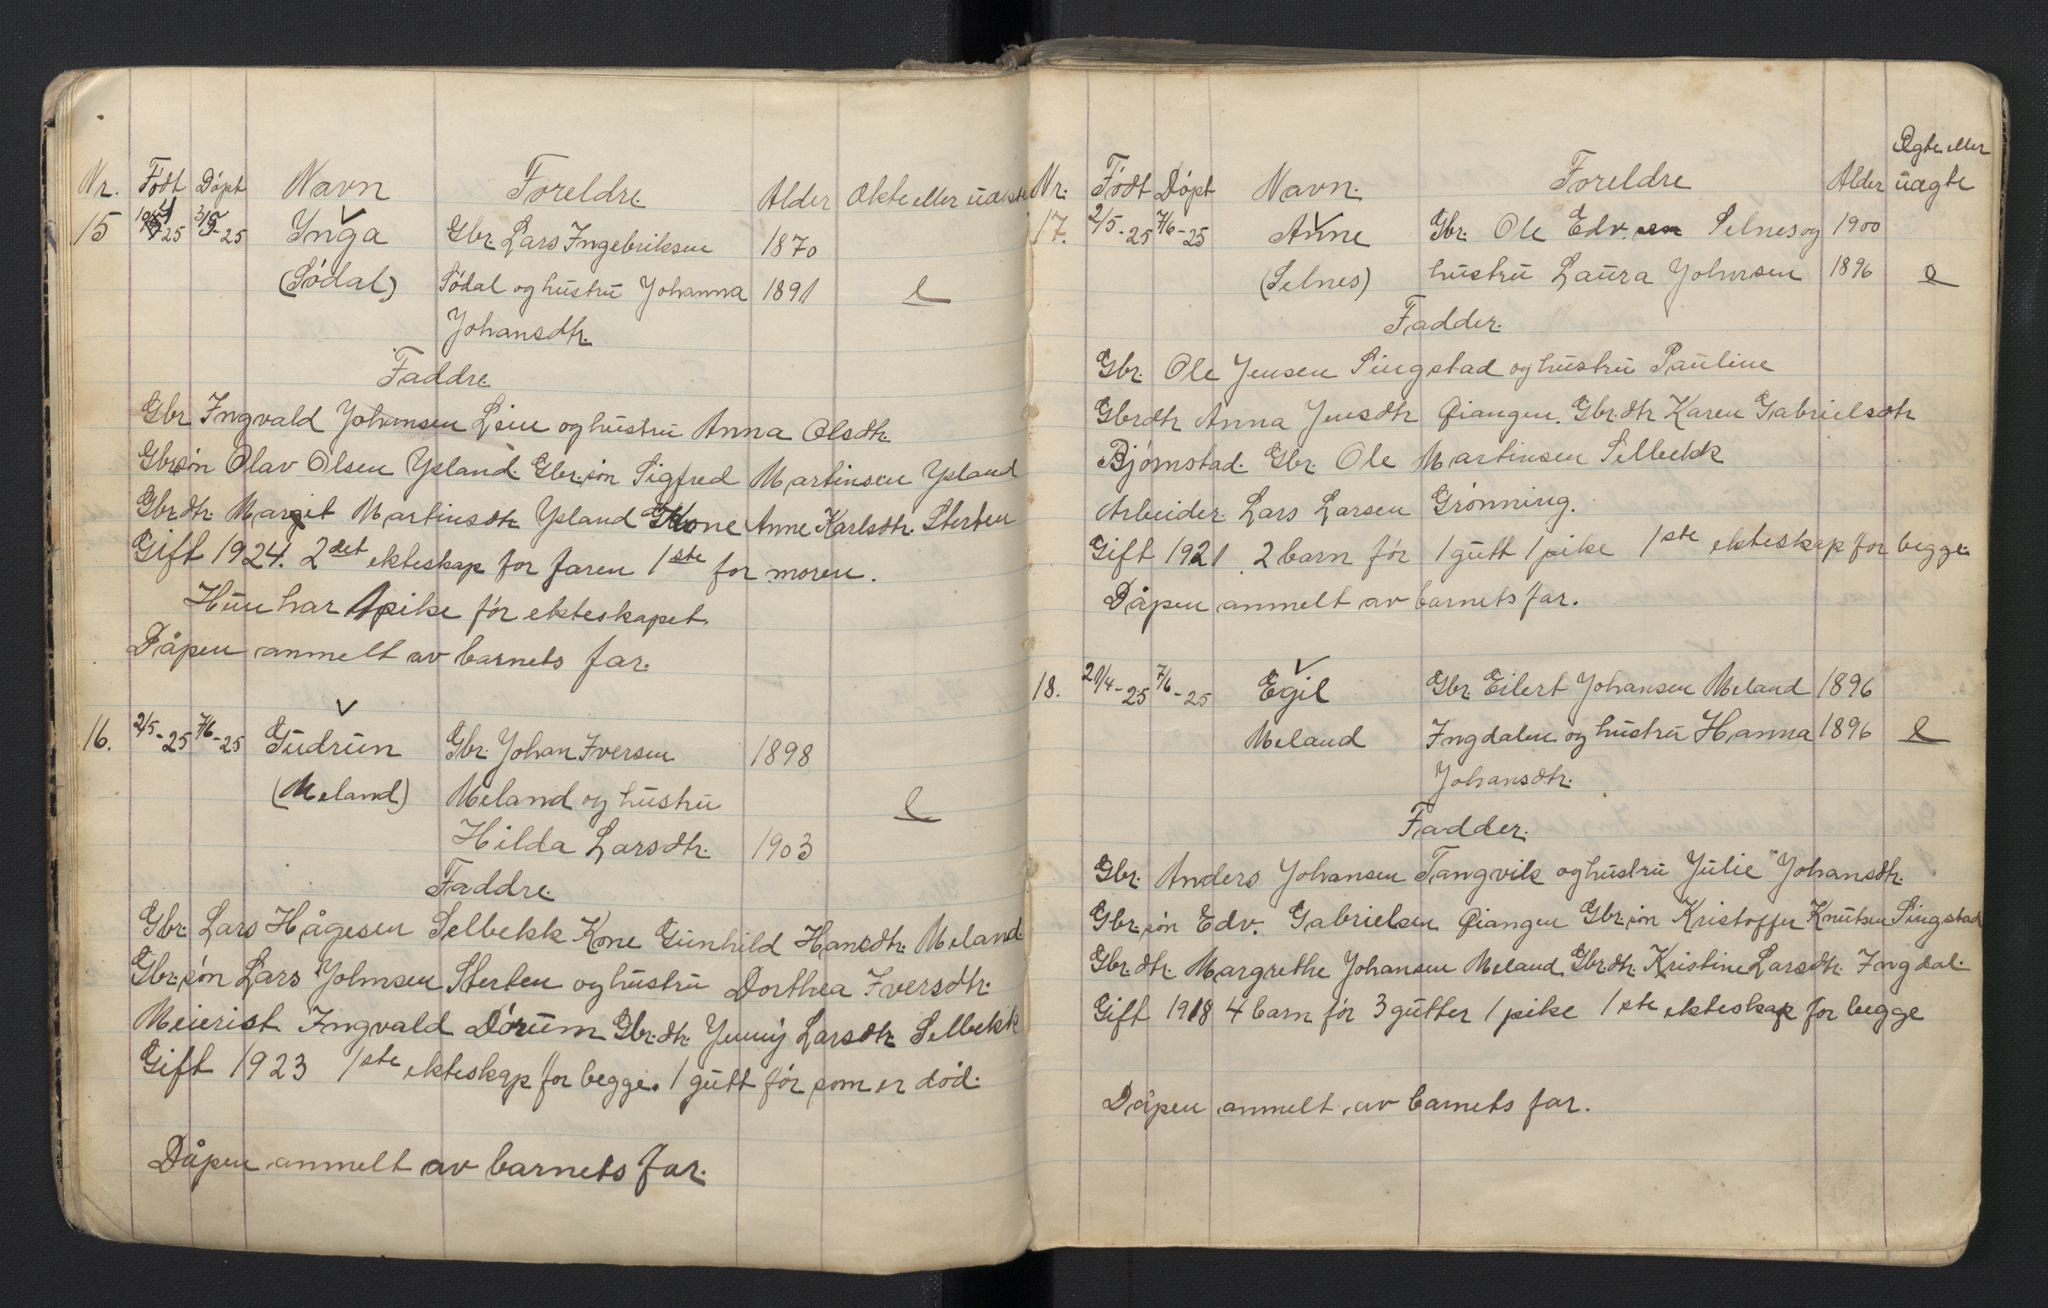 Nr. Født Døpt Navn Foreldre. Alder Ekte eller uekte
15 25 3/5-25 Inga Gbr. Lars Ingebriksen 1870
(Sødal) Sødal og hustru Johanna 1891 e
Johansdtr.
Faddre.
Gbr Ingvald Johansen Lein og hustru Anna Olsdtr.
Gbr.søn Olav Olsen Ysland. Gbr.søn Sigfred Martinsen Ysland
Gbr.dtr. Margit Martinsdtr Ysland Kone Anne Karlsdtr. Sterten
Gift 1924. 2det ekteskap for faren 1ste for moren.
Hun har 1 pike før ekteskapet.
Dåpen anmelt av barnets far.
16. 2/5-25 7/6-25 Gudrun Gbr. Johan Iversen 1898
(Meland) Meland og hustru e
Hilda Larsdtr. 1903
Faddre.
Gbr. Lars Hågesen Selbekk Kone Gunhild Hansdtr. Meland
Gbr.søn Lars Johnsen Sterten og hustru Dorthea Iversdtr.
Meierist Ingvald Dørum Gbr.dtr. Jenny Larsdtr Selbekk
Gift 1923 1ste ekteskap for begge. 1 gutt før som er død.
Dåpen anmelt av barnets far.
Nr. Født Døpt Navn. Foreldre Alder Ægte eller uægte
17. 2/5-25 7/6-25 Anne Gbr. Ole Edv. Selnes og 1900
(Selnes) hustru Laura Johnsen 1896 e
Fadder.
Gbr. Ole Jensen Singstad og hustru Pauline
Gbrdtr Anna Jensdtr Qiangen. Gbr.dtr Karen Gabrielsdtr
Bjørnstad. Gbr. Ole Martinsen Selbekk
Arbeider. Lars Larsen Grønning.
Gift 1921 2 barn før 1 gutt 1 pike 1ste ekteskap for begge.
Dåpen anmelt av barnets far.
18. 21/4-25 7/6-25 Egil Gbr. Eilert Johansen Meland 1896
Meland Ingdalen og hustru Hanna 1896 e
Johansdtr.
Fadder.
Gbr. Anders Johansen Tangvik og hustru Julie Johansdtr.
Gbr.søn Edv. Gabrielsen Qiangen Gbr.søn Kristoffer Knutsen Singstad
Gbr.dtr. Margrethe Johansen Meland Gbr.dtr. Kristine Larsdtr. Ingdal.
Gift 1918 4 barn før 3 gutter 1 pike 1ste ekteskap for begge
Dåpen anmelt av barnets far.